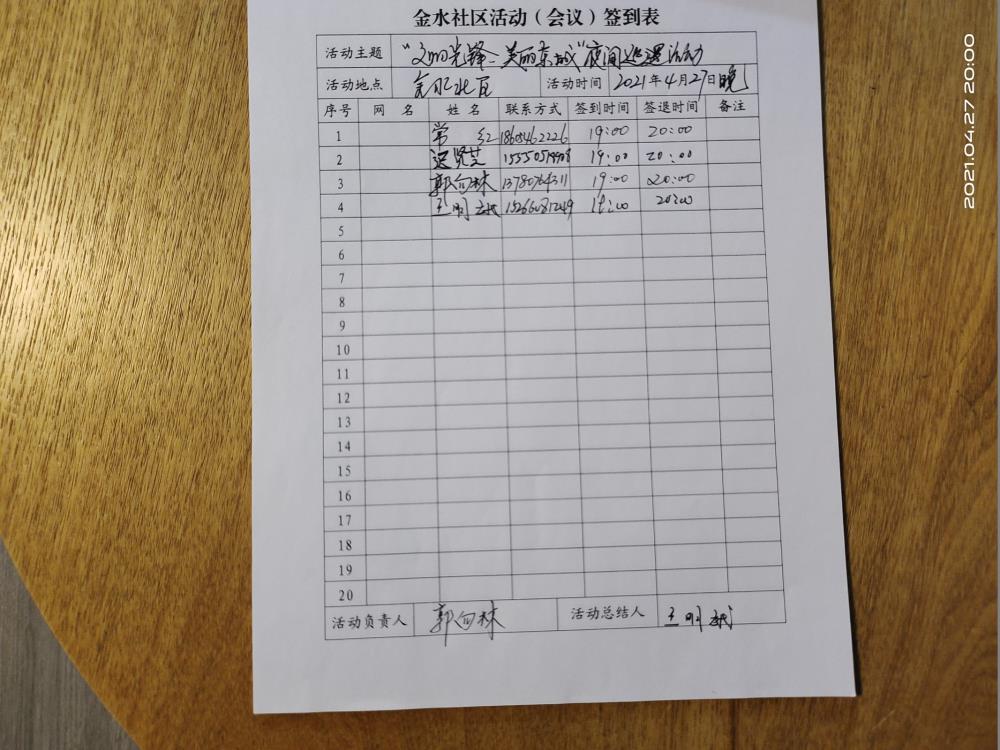 金水社区活动（会议）签到表
活动主题 "文明先锋 美丽东城"夜间巡逻活动
活动地点 金水北区 活动时间 2021年4月27日晚
序号 网 名 姓 名 联系方式 签到时间 签退时间 备注
1 常 红 19:00 20:00
2 迟贤芝 19:00 20:00
3 郭向林 19:00 20:00
4 王明 20:00
5
6
7
8
9
10
11
12
13
14
15
16
17
18
19
20
活动负责人 郭向林 活动总结人 王明
2021.04.27 20:00